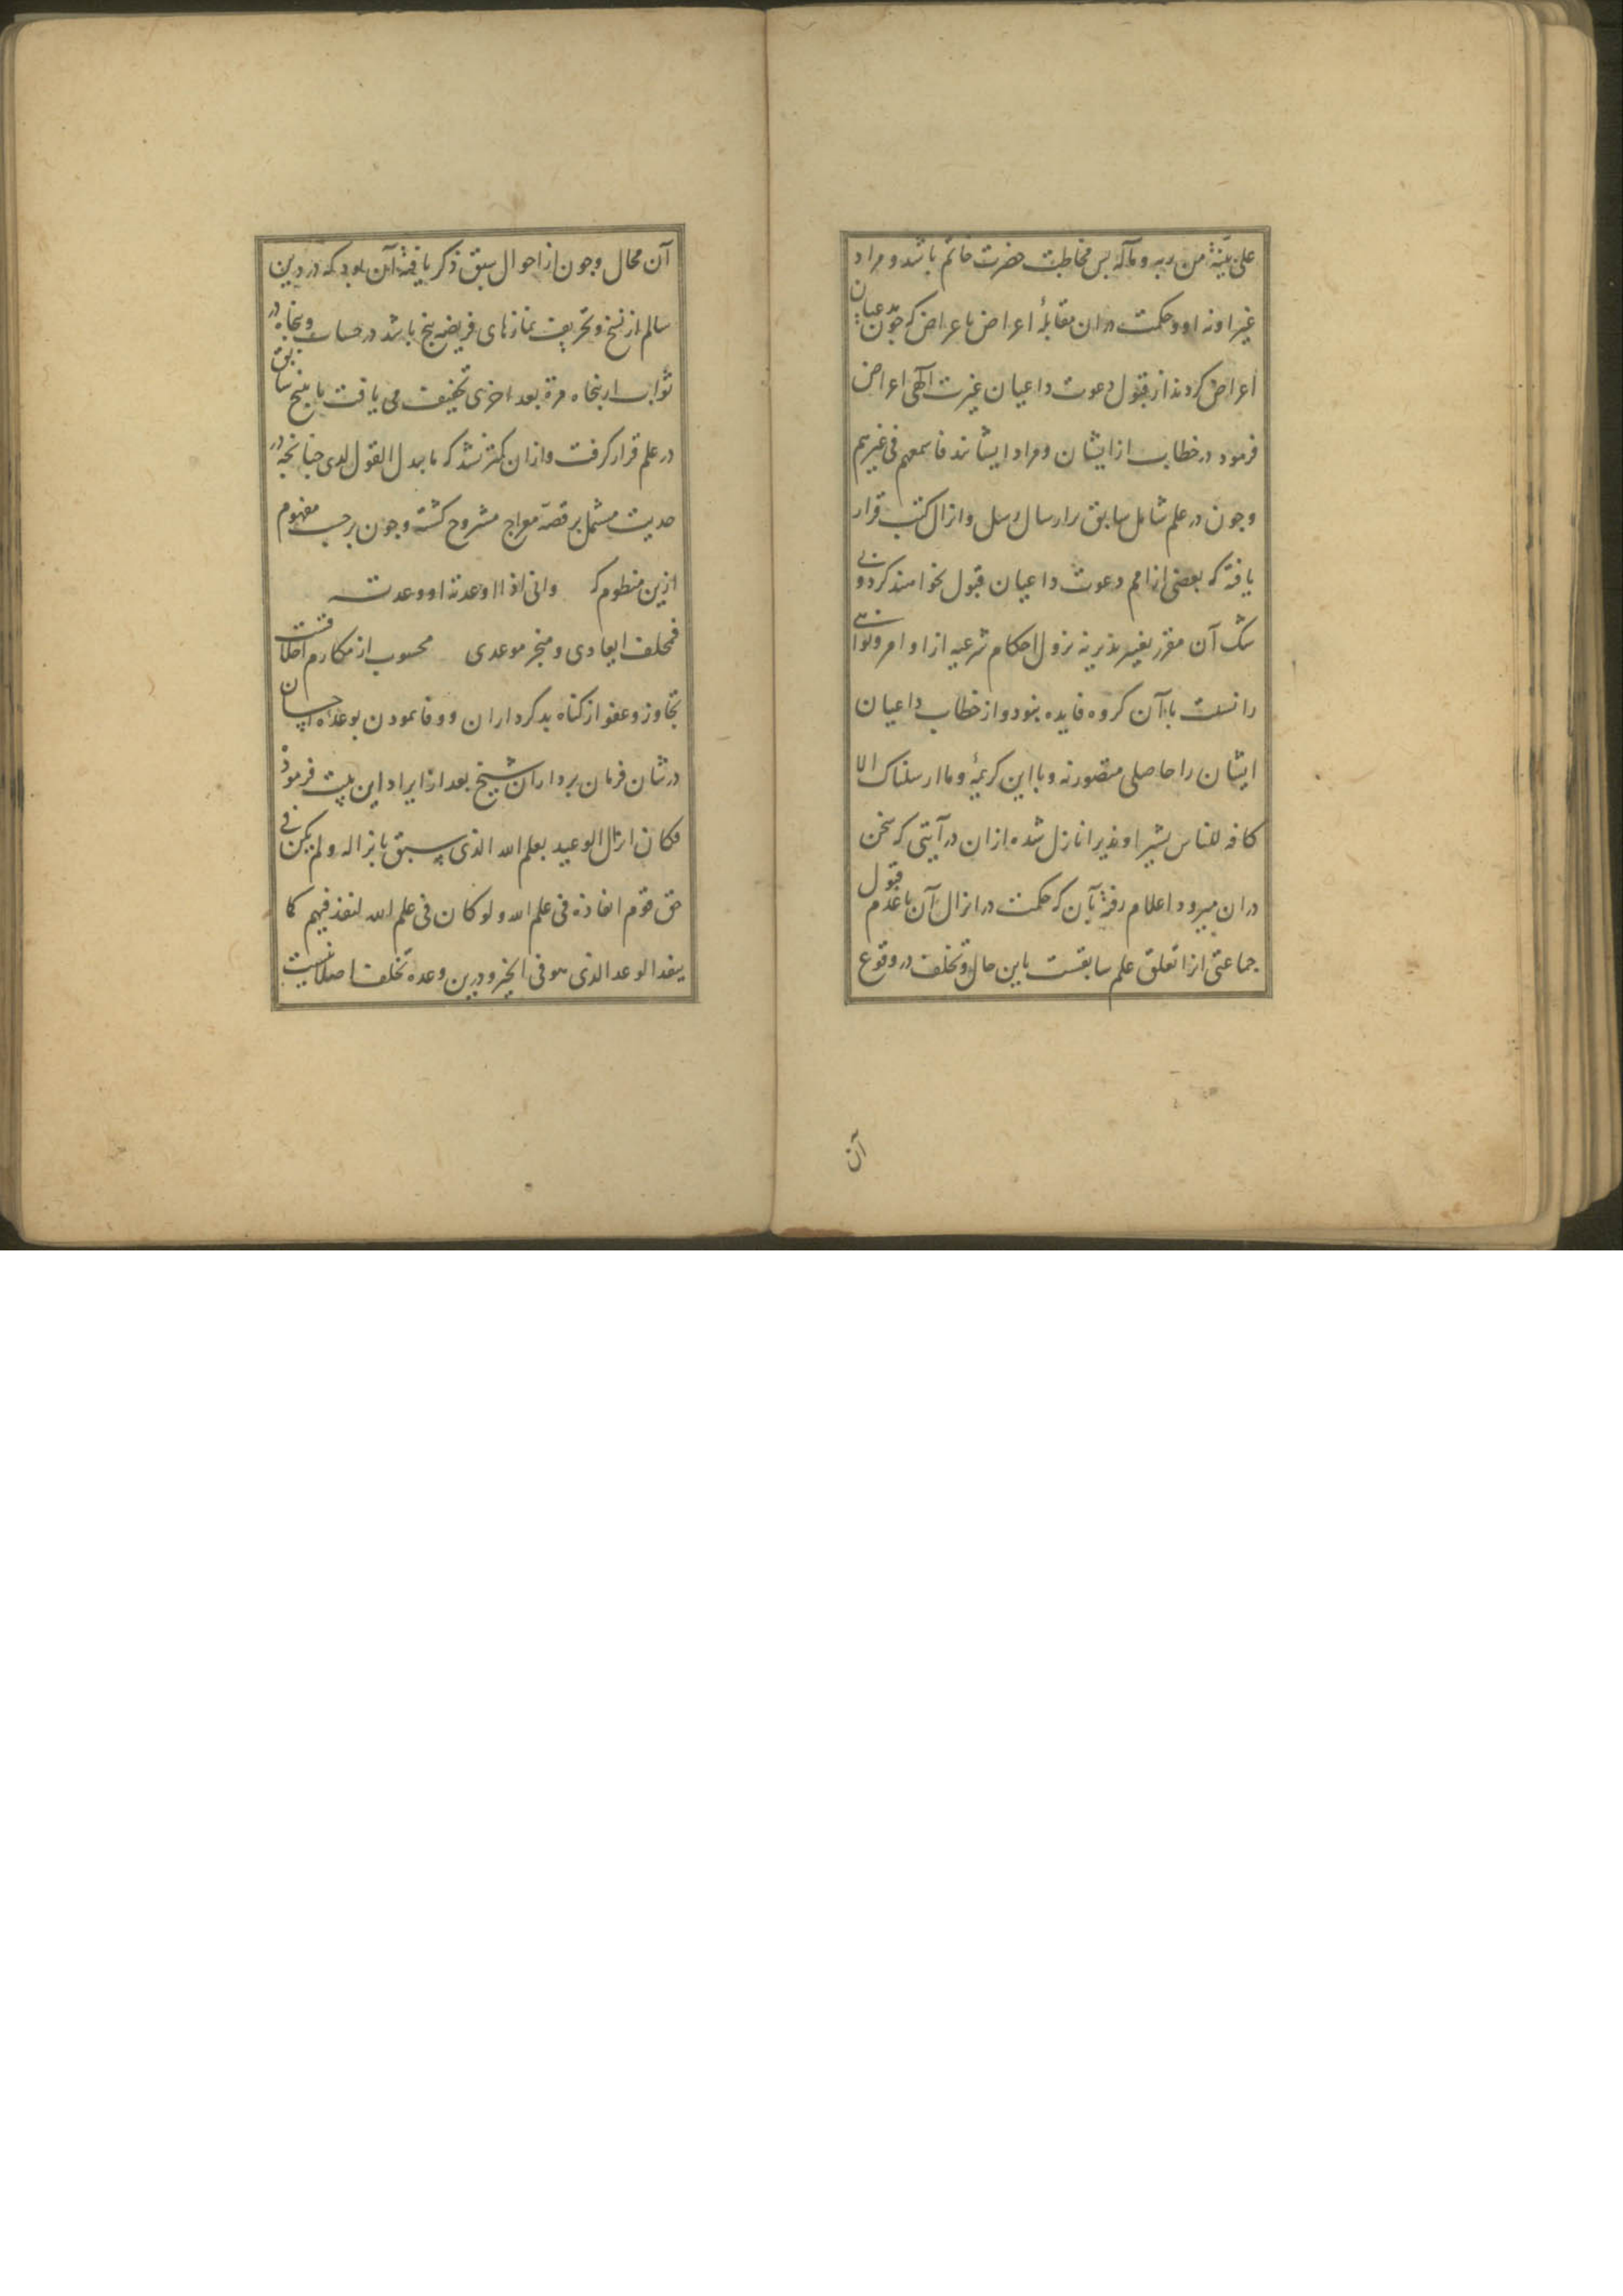 علی بینة من ربه و مآله بس مخاطب حضرت خاتم باشد و مراد
غیر او نه او و حکمت دران مقابلهٔ اعراض باعراض که چون مدعیان
اعراض کردند از قبول دعوت داعیان غیرت الهی اعراض
فرمود در خطاب از ایشان و مراد ایشانند فاسمعهم فی غیرهم
و جون در علم شامل سابق را ارسال رسل و انزال کتب قرار
یافته که بعضی از امم دعوت داعیان قبول نخواهند کرد و بی
شک آن مقرر تغییر نپذیر نه نزول احکام شرعیه از اوامر و نواهی
را نسبت باآن کروه فایده بنود و از خطاب داعیان
ایشان را حاصلی متصور نه و بااین کریمهٔ وما ارسلناک الا
کافه للناس بشیرا و نذیرا نازل شده ازان در آیتی که سخن
دران میرود اعلام رفته بآن که حکمت در انزال آن با عدم قبول
جماعتی انرا تعلق علم سابقست باین حال و تخلف در وقوع
آن
آن محال و جون از احوال سبق ذکر یافته آن بود که در دین
سالم از نسخ و تحریف نمازهای فریضه پنج باشد در حساب و پنجاه در
ثواب از پنجاه مرة بعد اخری تخفیف می یافت تا بپنج سابق
در علم قرار کرفت و ازان کمتر نشد که ما یبدل القول لدی جنانجه در
حدیث مشتمل بر قصهٔ معراج مشروح کشته و جون برحسب مفهوم
ازین منظوم که وانی اذا اوعدته او وعدته
فمخلف ایعادی و منجز موعدی محسوب از مکارم اخلاقست
تجاوز و عفو از کناه بدکرداران و وفا نمودن بوعدهٔ احسان
در شان فرمان برداران شیخ بعد از ایراد این بیت فرموده
فکان انزال الوعید بعلم الله الذی سبق بانزاله و لم یکن فی
حق قوم انفاذه فی علم الله ولو کان فی علم الله لنفذ فیهم کما
ینفذ الوعد الذی هو فی الخیر و درین وعده تخلف اصلا نیست